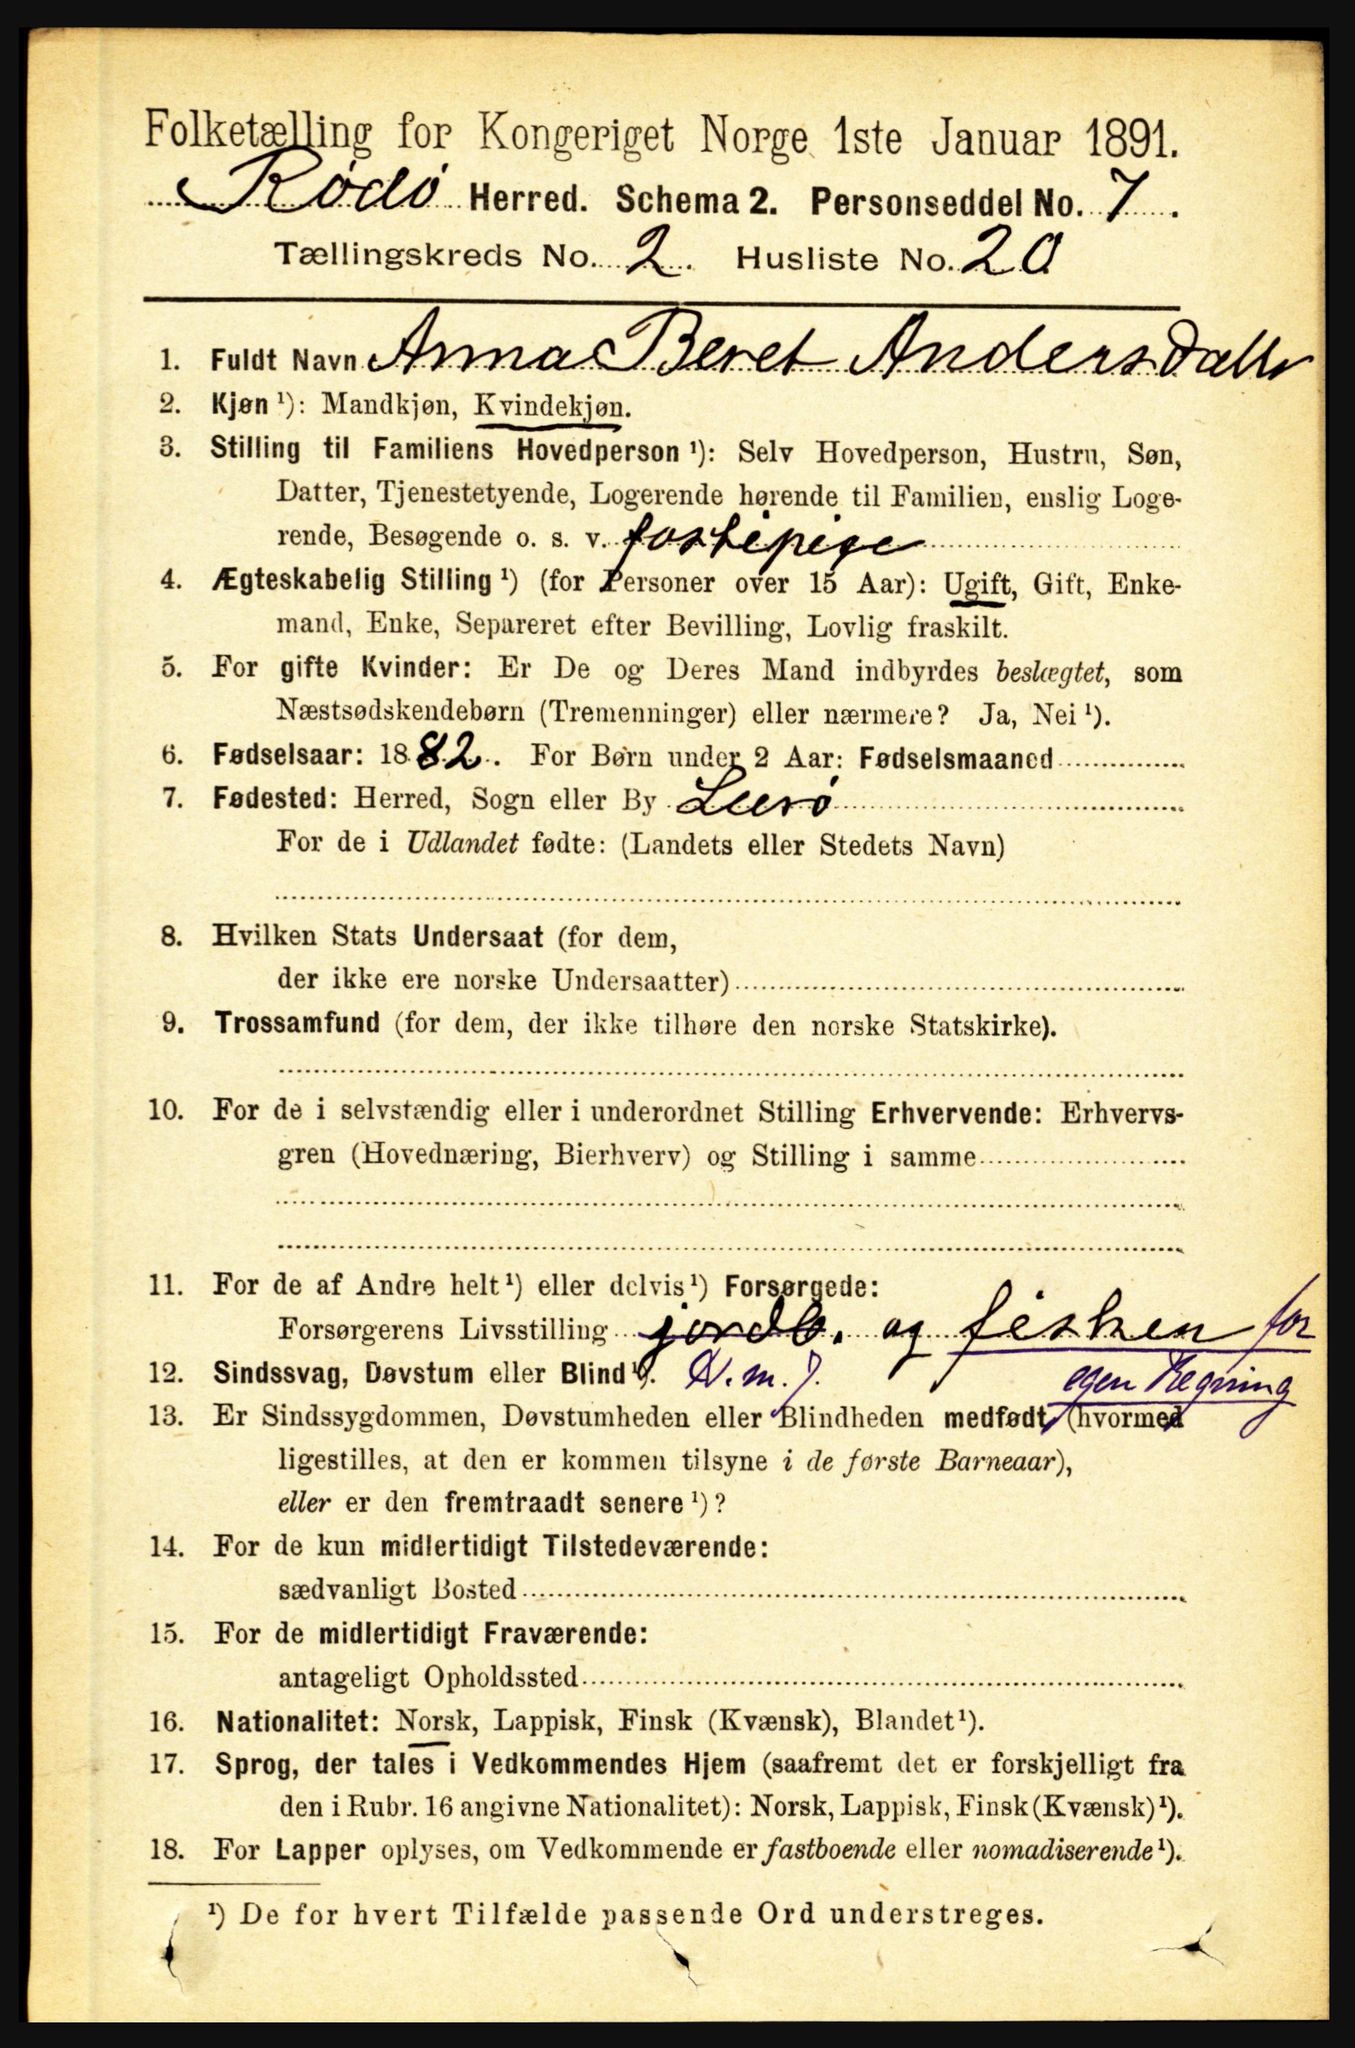 Folketælling for Kongeriget Norge 1ste Januar 1891.
Rødø Herred. Schema 2. Personseddel No. 7.
Tællingskreds No. 2. Husliste No. 20
1. Fuldt Navn Anna Beret Andersdatter
2. Kjøn ¹): Mandkjøn, Kvindekjøn.
3. Stilling til Familiens Hovedperson ¹): Selv Hovedperson, Hustru, Søn,
Datter, Tjenestetyende, Logerende hørende til Familien, enslig Loge-
rende, Besøgende o. s. v. fostepige
4. Ægteskabelig Stilling ¹) (for Personer over 15 Aar): Ugift, Gift, Enke-
mand, Enke, Separeret efter Bevilling, Lovlig fraskilt.
5. For gifte Kvinder: Er De og Deres Mand indbyrdes beslægtet, som
Næstsødskendebørn (Tremenninger) eller nærmere? Ja, Nei ¹).
6. Fødselsaar: 1882. For Børn under 2 Aar: Fødselsmaaned
7. Fødested: Herred, Sogn eller By Lurø
For de i Udlandet fødte: (Landets eller Stedets Navn)
8. Hvilken Stats Undersaat (for dem,
der ikke ere norske Undersaatter)
9. Trossamfund (for dem, der ikke tilhøre den norske Statskirke).
10. For de i selvstændig eller i underordnet Stilling Erhvervende: Erhvervs-
gren (Hovednæring, Bierhverv) og Stilling i samme
11. For de af Andre helt ¹) eller delvis ¹) Forsørgede:
Forsørgerens Livsstilling jordb. og fisker for
12. Sindssvag, Døvstum eller Blind ¹). egen Regning
13. Er Sindssygdommen, Døvstumheden eller Blindheden medfødt (hvormed
ligestilles, at den er kommen tilsyne i de første Barneaar),
eller er den fremtraadt senere ¹)?
14. For de kun midlertidigt Tilstedeværende:
sædvanligt Bosted
15. For de midlertidigt Fraværende:
antageligt Opholdssted
16. Nationalitet: Norsk, Lappisk, Finsk (Kvænsk), Blandet ¹).
17. Sprog, der tales i Vedkommendes Hjem (saafremt det er forskjelligt fra
den i Rubr. 16 angivne Nationalitet): Norsk, Lappisk, Finsk (Kvænsk) ¹).
18. For Lapper oplyses, om Vedkommende er fastboende eller nomadiserende ¹).
¹) De for hvert Tilfælde passende Ord understreges.